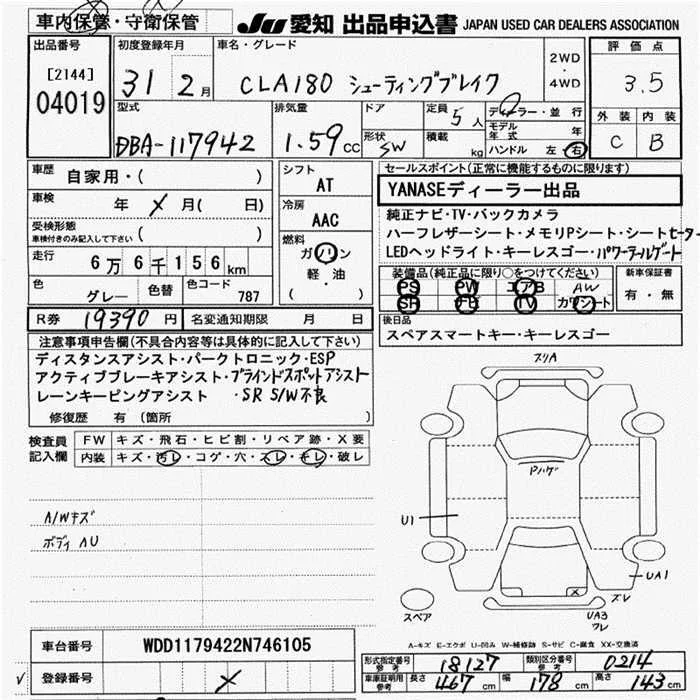 車内保管・守衛保管
JU 愛知 出品申込書 JAPAN USED CAR DEALERS ASSOCIATION
出品番号
[2144]
04019
初度登録年月
31 2月
車名・グレード
CLA180 シューティングブレイク
2WD
・
4WD
評価点
3.5
外装 内装
C B
型式
DBA-117942
排気量
1.59 CC
ドア
形状
SW
定員
5人
積載
kg
ディーラー・並行
モデル年式 年
ハンドル 左・右
車歴
自家用・( )
車検
年 メ 月( 日)
受検形態
車検付きのみ記入して下さい ( )
走行
6万6千156km
色
グレー
色替
色コード
787
シフト
AT
冷房
AAC
燃料
ガソリン
軽・油
( )
セールスポイント(正常に機能するものに限ります)
YANASEディーラー出品
純正ナビ・TV・バックカメラ
ハーフレザーシート・メモリPシート・シートヒーター
LEDヘッドライト・キーレスゴー・パワーテールゲート
装備品(純正品に限り○をつけてください)
PS PW エアB AW
SR ナビ TV カワシート
新車保証書
有・無
R券 19390円
名変通知期限 月 日
後日品
スペアスマートキー・キーレスゴー
注意事項申告欄(不具合内容等は具体的に記入して下さい)
ディスタンスアシスト・パークトロニック・ESP
アクティブブレーキアシスト・ブラインドスポットアシスト
レーンキーピングアシスト ・SR S/W不良
修復歴 有(箇所 )
検査員
記入欄
FW キズ・飛石・ヒビ割・リペア跡・X要
内装 キズ・汚レ・コゲ・穴・スレ・キレ・破レ
A/Wキズ
ボディ AU
スリA
Pハゲ
U1
X
UA1
ズレ
スペア
UA3
ワレ
A-キズ E-エクボ U-凹み W-補修跡 S-サビ C-腐食 XX-交換済
車台番号 WDD1179422N746105
登録番号 メ
√
形式指定番号
参考
18127
類別区分番号
参考
0214
車庫証明用
参考
長さ 467cm
幅 178cm
高さ 143cm